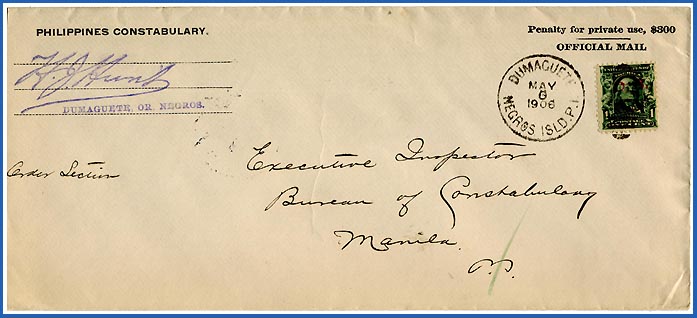 PHILIPPINES CONSTABULARY.
Penalty for private use, $300
OFFICIAL MAIL
H. J. Hunt
DUMAGUETE, OR. NEGROS.
DUMAGUETE
MAY
6
1906
NEGROS ISLD. P.I.
1
Order Section
Executive Inspector
Bureau of Constabulary
Manila.
P.I.